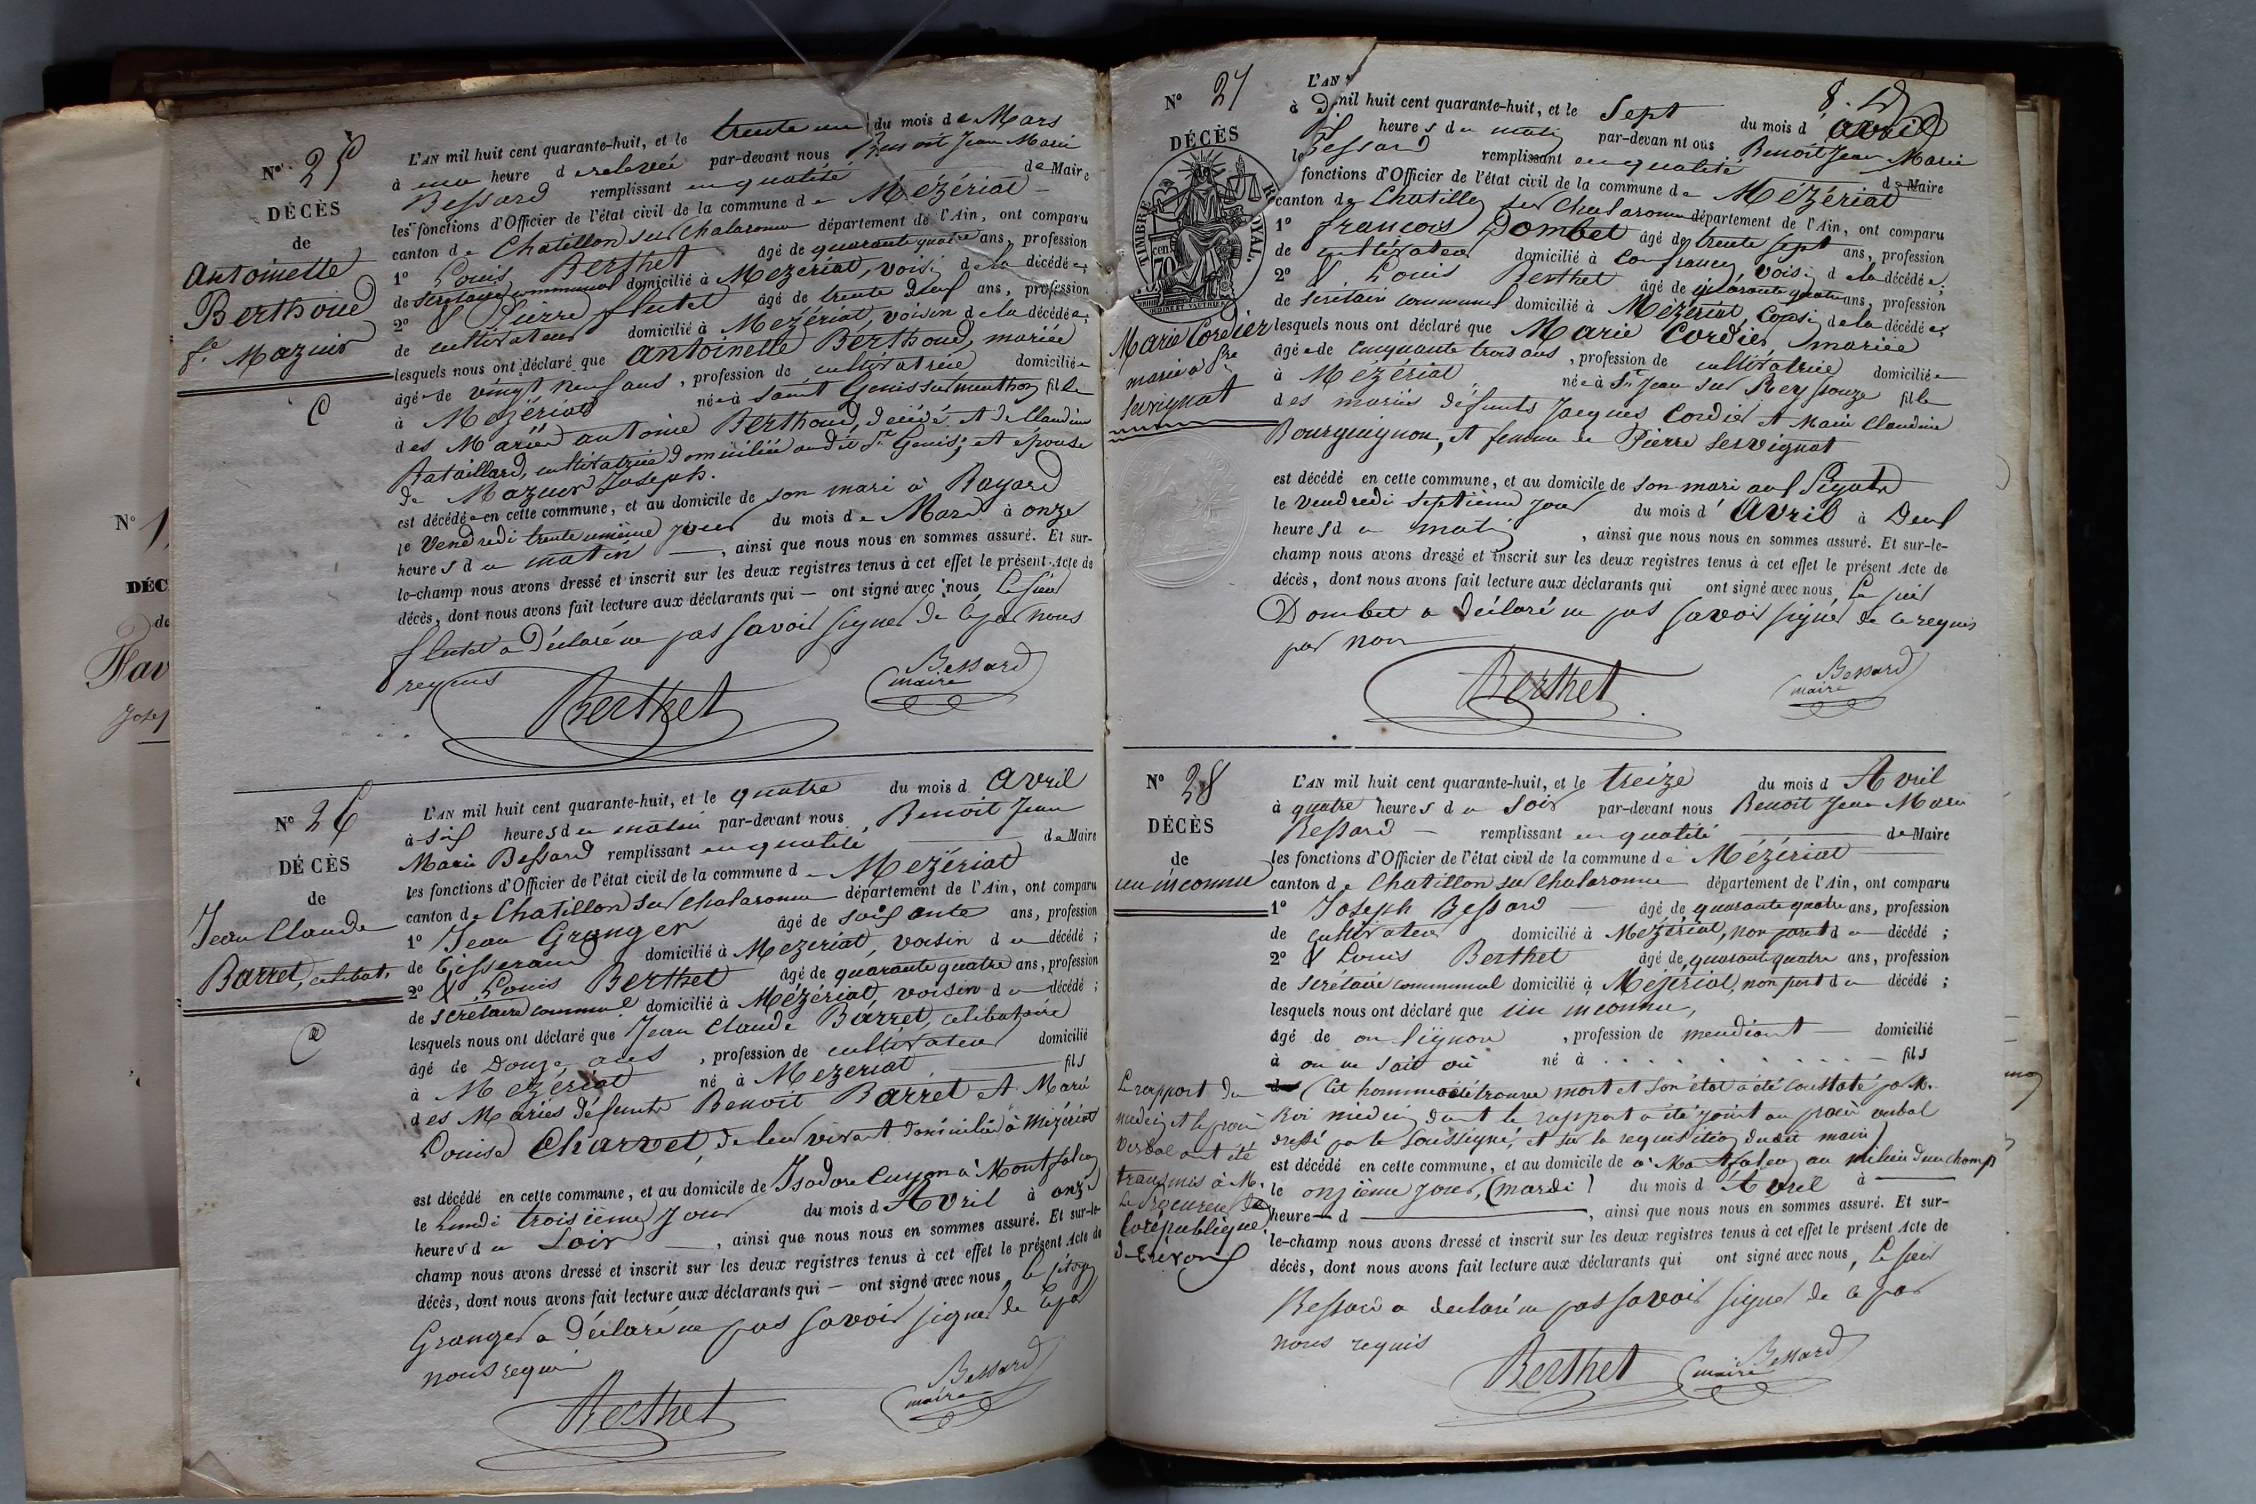 N°. 25
DÉCÈS
de
Antoinette
Berthoud
fe. Mazuir
C
L'AN mil huit cent quarante-huit, et le trente un du mois de Mars
à une heure de relevée par-devant nous Benoit Jean Marie
Bessard remplissant en qualité de Maire
les fonctions d'Officier de l'état civil de la commune de Mézériat
canton de Chatillon sur Chalaronne département de l'Ain, ont comparu
1° Louis Berthet âgé de quarante quatre ans, profession
de secrétaire communal domicilié à Mezeriat, voisin de la décédée;
2° & Pierre flutet âgé de trente deux ans, profession
de cultivateur domicilié à Mezériat, voisin de la décédée;
lesquels nous ont déclaré que antoinette Berthoud, mariée
âgée de vingt neuf ans, profession de cultivatrice domiciliée
à Mezériat née à saint Genis sur menthon fille
des Mariés antoine Berthoud, décédé et de Claudine
Bataillard, cultivatrice domiciliée au dit St Genis; et épouse
de Mazuir Joseph.
est décédée en cette commune, et au domicile de son mari à Bayard
le Vendredi trente unième jour du mois de Mars à onze
heures du matin , ainsi que nous nous en sommes assuré. Et sur-
le-champ nous avons dressé et inscrit sur les deux registres tenus à cet effet le présent Acte de
décès, dont nous avons fait lecture aux déclarants qui — ont signé avec nous, le sieur
flutet a Déclaré ne pas savoir signer de ce par nous
requis
Berthet Bessard
maire
N° 26
DÉCÈS
de
Jean Claude
Barret, celibate
C
L'AN mil huit cent quarante-huit, et le quatre du mois d avril
à six heures du matin par-devant nous Benoit Jean
Marie Bessard remplissant en qualité de Maire
les fonctions d'Officier de l'état civil de la commune de Mezériat
canton de Chatillon sur Chalaronne département de l'Ain, ont comparu
1° Jean Granger âgé de soixante ans, profession
de Tisserand domicilié à Mezeriat, voisin du décédé;
2° & Louis Berthet âgé de quarante quatre ans, profession
de secrétaire communal domicilié à Mézériat, voisin du décédé;
lesquels nous ont déclaré que Jean Claude Barret, celibataire
âgé de Douze ans, profession de cultivateur domicilié
à Mezériat né à Mezeriat fils
des Mariés défunts Benoit Barret et Marie
Louise Charvet, de leur vivant domiciliés à Mézériat
est décédé en cette commune, et au domicile de Isodore Cuyon à Montfalcon
le Lundi troisième jour du mois d Avril à onze
heures du Soir , ainsi que nous nous en sommes assuré. Et sur-le-
champ nous avons dressé et inscrit sur les deux registres tenus à cet effet le présent Acte de
décès, dont nous avons fait lecture aux déclarants qui — ont signé avec nous,
Granger a Déclaré ne pas savoir signer de ce par
nous requis
Berthet Bessard
maire
N° 27
DÉCÈS
TIMBRE ROYAL
Marie Cordier
marié à Pre
servignat
L'AN mil huit cent quarante-huit, et le Sept du mois d' avril
à Dix heures du matin par-devant nous Benoit Jean Marie
Bessard remplissant en qualité de Maire
les fonctions d'Officier de l'état civil de la commune de Mézériat
canton de Chatillon sur Chalaronne département de l'Ain, ont comparu
1° françois Dombet âgé de trente sept ans, profession
de cultivateur domicilié à Confrançon, voisin de la décédée;
2° & Louis Berthet âgé de quarante quatre ans, profession
de secrétaire communal domicilié à Mézériat, cousin de la décédée;
lesquels nous ont déclaré que Marie Cordier mariée
âgée de cinquante trois ans, profession de cultivatrice domiciliée
à Mézériat née à St Jean sur Reyssouze fille
des mariés défunts Jacques Cordier et Marie Claudine
Bourguignon, et femme de Pierre Servignat
est décédé en cette commune, et au domicile de son mari aux
le vendredi septième jour du mois d' Avril à Deux
heures du matin , ainsi que nous nous en sommes assuré. Et sur-le-
champ nous avons dressé et inscrit sur les deux registres tenus à cet effet le présent Acte de
décès, dont nous avons fait lecture aux déclarants qui ont signé avec nous, le sieur
Dombet a déclaré ne pas savoir signer de ce requis
par nous
Berthet Bessard
maire
N° 28
DÉCÈS
de
un inconnu
Le rapport du
medecin et le procès
Verbal ont été
transmis à M.
Le Procureur de
la république
de Trevoux
L'AN mil huit cent quarante-huit, et le treize du mois d Avril
à quatre heures du soir par-devant nous Benoit Jean Marie
Bessard — remplissant en qualité de Maire
les fonctions d'Officier de l'état civil de la commune de Mézériat
canton de Chatillon sur Chalaronne département de l'Ain, ont comparu
1° Joseph Bessard — âgé de quarante quatre ans, profession
de cultivateur domicilié à Mezériat, non parent du décédé;
2° & Louis Berthet âgé de quarante quatre ans, profession
de secrétaire communal domicilié à Mézériat, non part du décédé;
lesquels nous ont déclaré que un inconnu,
âgé de on l'ignore, profession de mendiant — domicilié
à on ne sait où né à . . . . . . . . . — fils
(Cet homme a été trouvé mort et son état a été constaté par M.
Roi médecin dont le rapport a été joint au procès verbal
dressé par le soussigné, et sur la requisition du dit maire)
est décédé en cette commune, et au domicile de à Montfalcon au milieu d'un champ
le onzième jour, (mardi) du mois d'Avril à —
heure — d — , ainsi que nous nous en sommes assuré. Et sur-
le-champ nous avons dressé et inscrit sur les deux registres tenus à cet effet le présent Acte de
décès, dont nous avons fait lecture aux déclarants qui ont signé avec nous, le sieur
Bessard a declaré ne pas savoir signer de ce par
nous requis
Berthet Bessard
maire